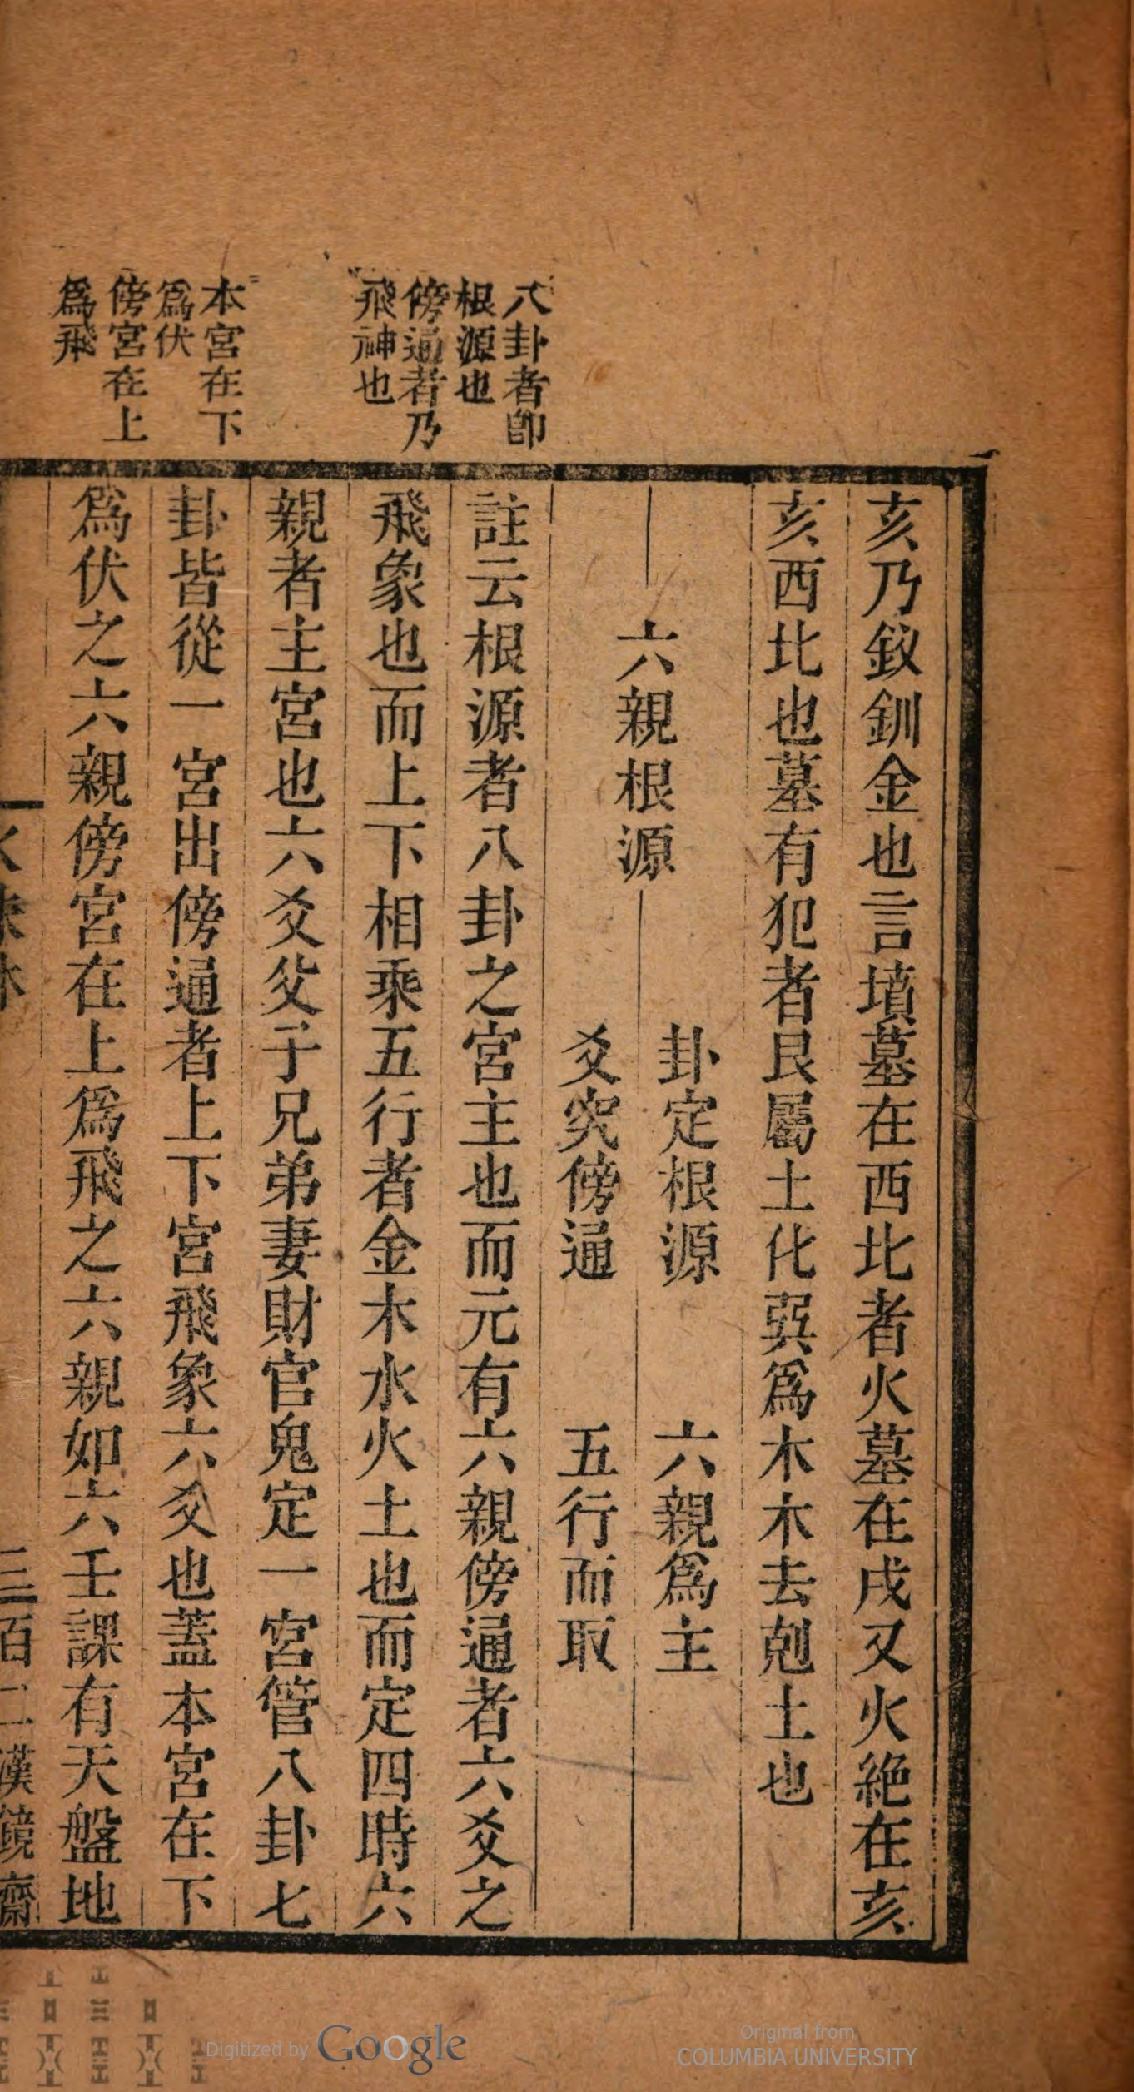 八卦者卽
根源也
傍通者乃
飛神也
本宮在下
爲伏
傍宮在上
爲飛
亥乃釵釧金也言墳墓在西北者火墓在戌又火絕在亥
亥西北也墓有犯者艮屬土化巽爲木木去剋土也
六親根源
卦定根源 六親爲主
爻究傍通 五行而取
註云根源者八卦之宮主也而元有六親傍通者六爻之
飛象也而上下相乘五行者金木水火土也而定四時六
親者主宮也六爻父子兄弟妻財官鬼定一宮管八卦七
卦皆從一宮出傍通者上下宮飛象六爻也蓋本宮在下
爲伏之六親傍宮在上爲飛之六親如六壬課有天盤地
三百二漢鏡齋
Digitized by Google
Original from
COLUMBIA UNIVERSITY